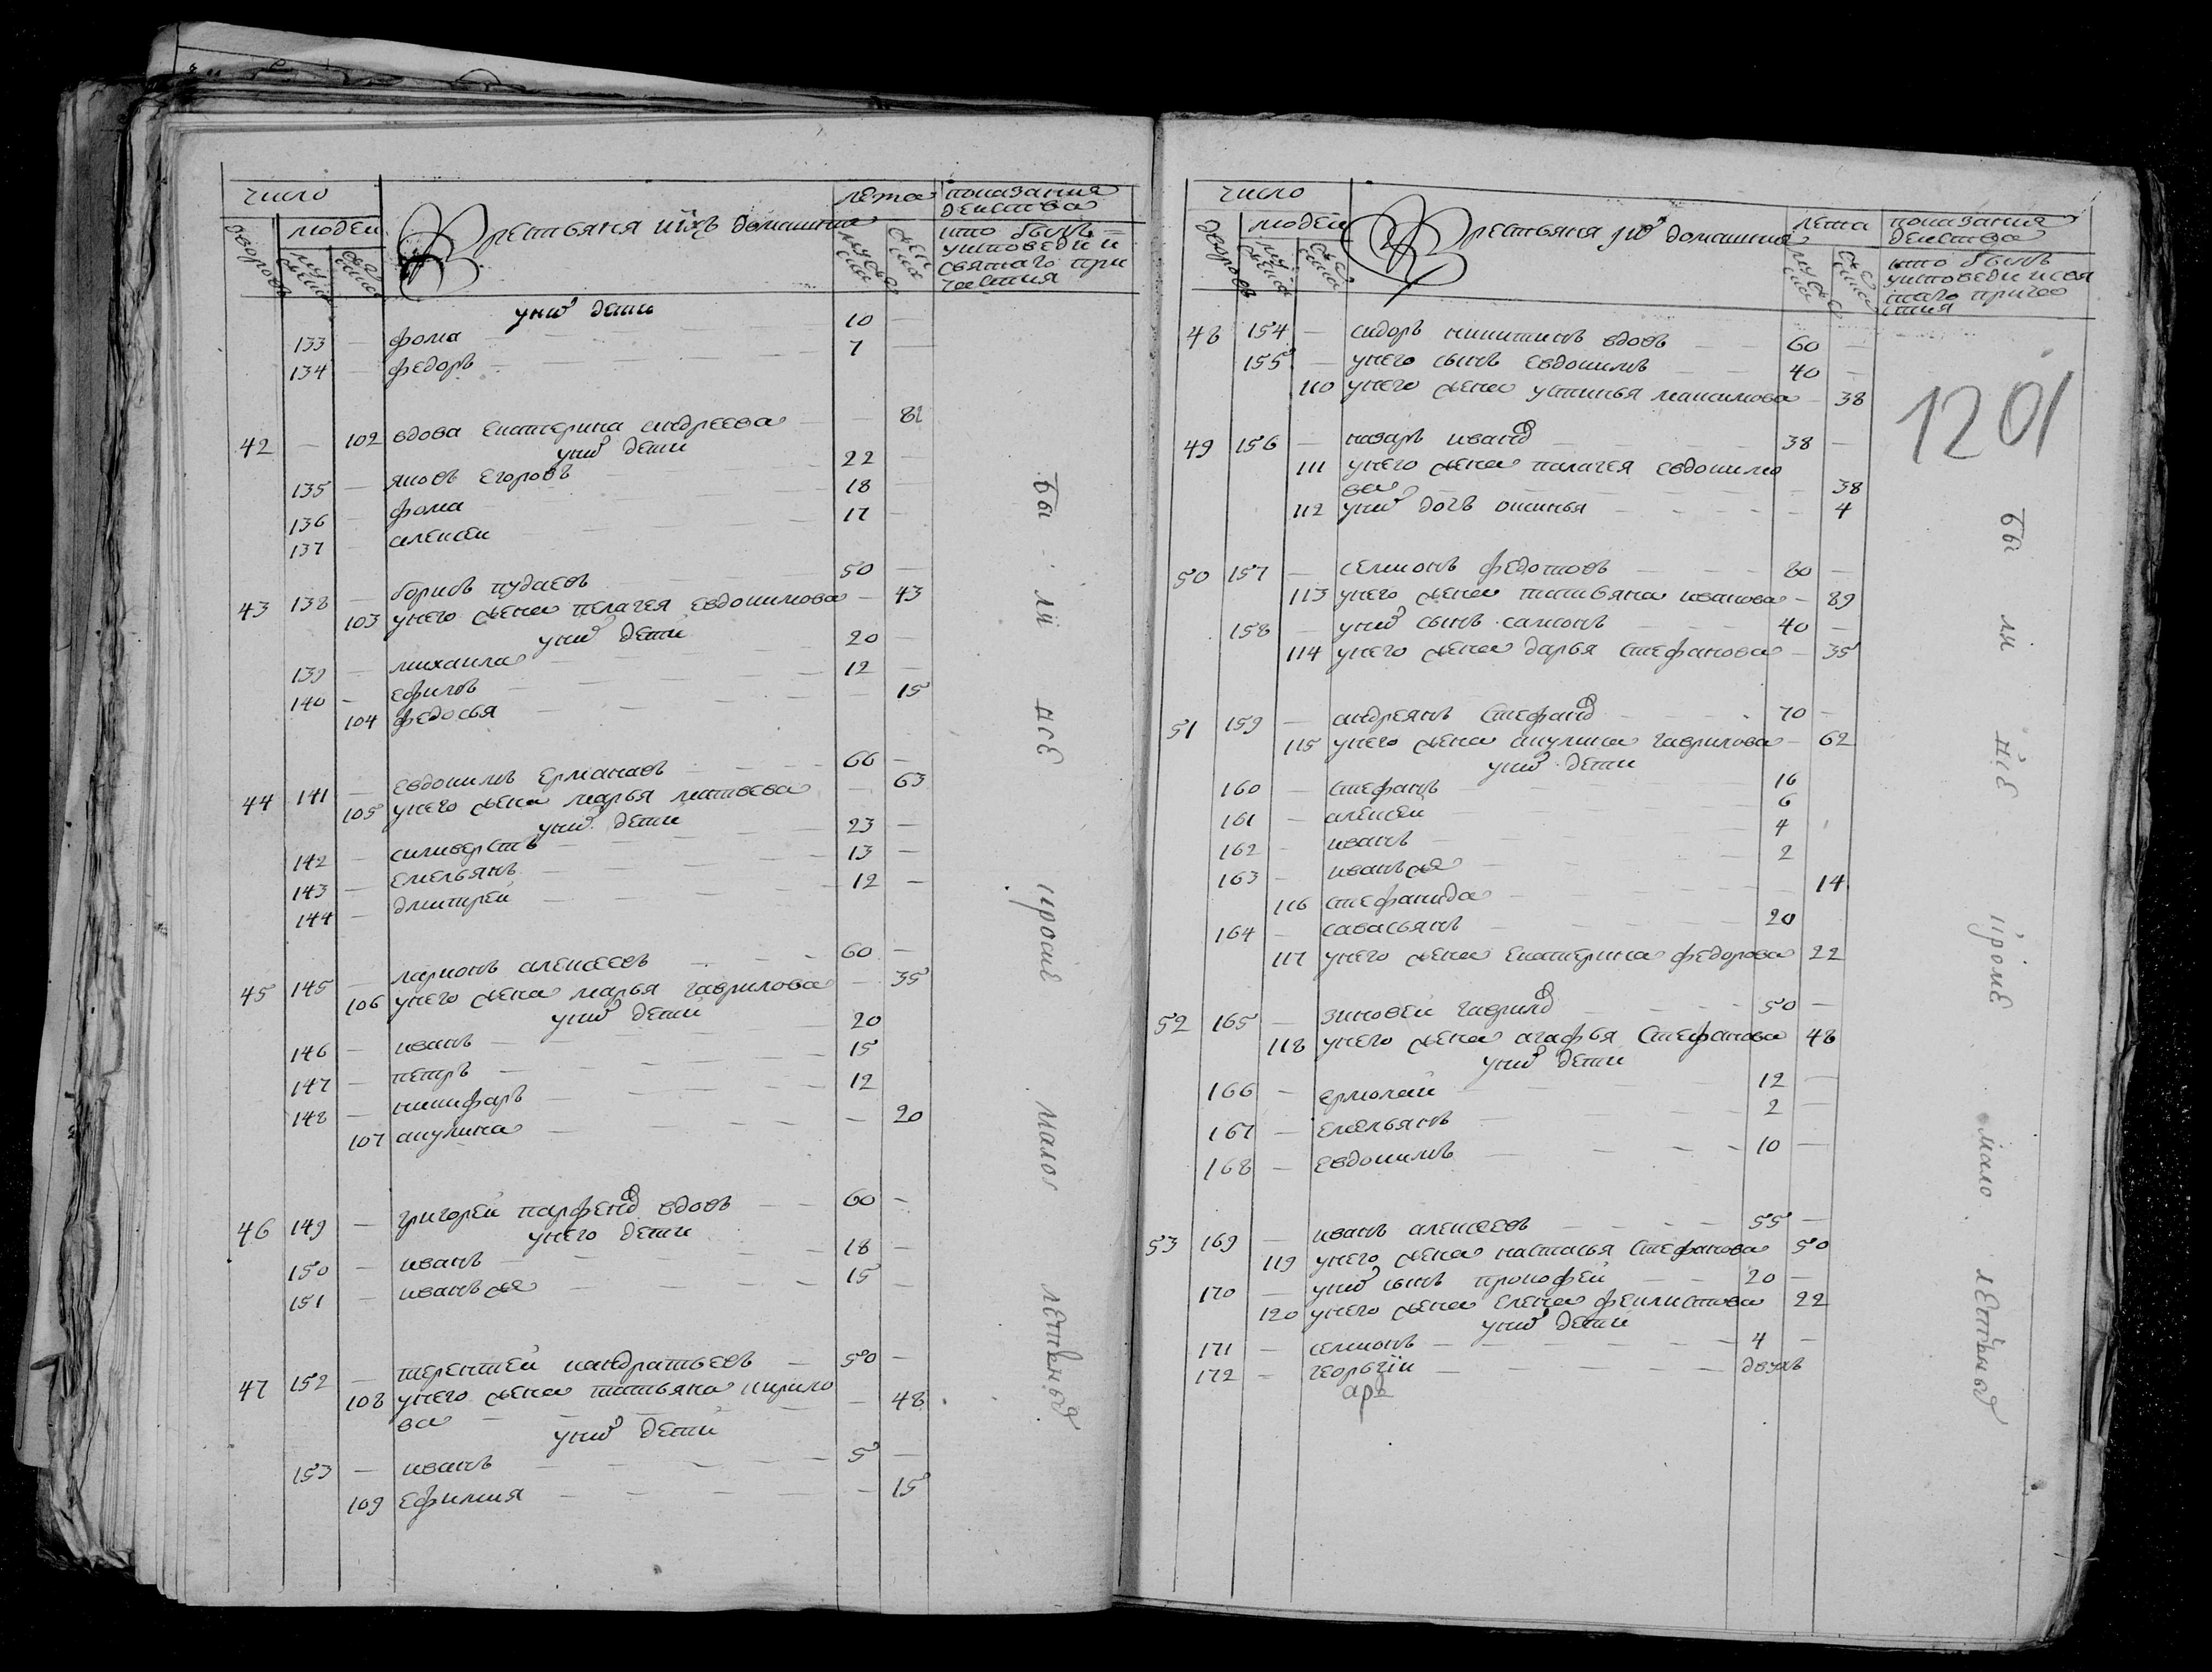 число
лета
показания действа
дворовъ
людей
мужеска
женска
Крестьяня иихъ домашния
мужеска
женска
кто былъ
уисповеди и
святаго при
частия
уних дети
133 — фома — 10 —
134 — федоръ — 7 —
42 — 102 вдова екатерина андреева — 82
уних дети
135 — яковъ егоровъ 22 —
136 — фома — 18 —
137 — алексеи — 17 —
43 138 — борисъ пудаевъ 50 —
103 унего жена пелагея евдокимова — 43
уних дети
139 — михаила — 20 —
140 — ефимъ — 12 —
104 федосья — 15
44 141 — евдокимъ ермакавъ — 66 —
105 унего жена марья матвева — 63
уних дети
142 — силиверстъ — 23 —
143 — емельянъ — 13 —
144 — дмитрей — 12 —
45 145 — ларионъ алексеевъ — 60 —
106 унего жена марья гаврилова — 35
уних дети
146 — иванъ — 20
147 — петръ — 15
148 — никифаръ — 12
107 акулина — 20
46 149 — григорей парфено вдовъ — 60 —
унего дети
150 — иванъ — 18 —
151 — иванъ же — 15 —
47 152 — терентей кандратьевъ — 50 —
108 унего жена татьяна кирило
ва — 48
уних дети
153 — иванъ — 5 —
109 ефимия — 15
бы ли все кроме малолетныхъ
число
лета
показания
действа
дворовъ
людей
мужеска
женска
Крестьяня ихъ домашния
мужеска
женска
кто былъ
уисповеди исвя
таго приче
стия
48 154 — сидоръ никитинъ вдовъ 60 —
155 — унего сынъ евдокимъ — 40 —
110 унего жена устинья максимова — 38
1201
49 156 — назаръ ивано — 38 —
111 унего жена палагея евдокимо
ва — 38
112 уних дочь аксинья — 4
50 157 — семионъ федотовъ — 80 —
113 унего жена татьяна иванова — 89
158 — уних сынъ самонъ — 40 —
114 унего жена дарья стефанова — 35
51 159 — андреянъ стефано — 70 —
115 унего жена акулина гаврилова — 62
уних дети
160 — стефанъ — 16
161 — алексей — 6
162 — иванъ — 4
163 — иванъ же — 2
116 стефанида — 14
164 — савасьянъ — 20
117 унего жена екатерина федорова 22
52 165 — зиновеи гаврило — 50 —
118 унего жена агафья стефанова 48
уних дети
166 — ермолаи — 12 —
167 — емельянъ — 2 —
168 — евдокимъ — 10 —
53 169 — иванъ алексеевъ — 55 —
119 унего жена настасья стефанова 50
170 — уних сынъ прокофей — 20 —
120 унего жена елена феилистова 22
уних дети
171 — семионъ — 4 —
172 — георьгии — двухъ
бы ли все кроме малолетныхъ